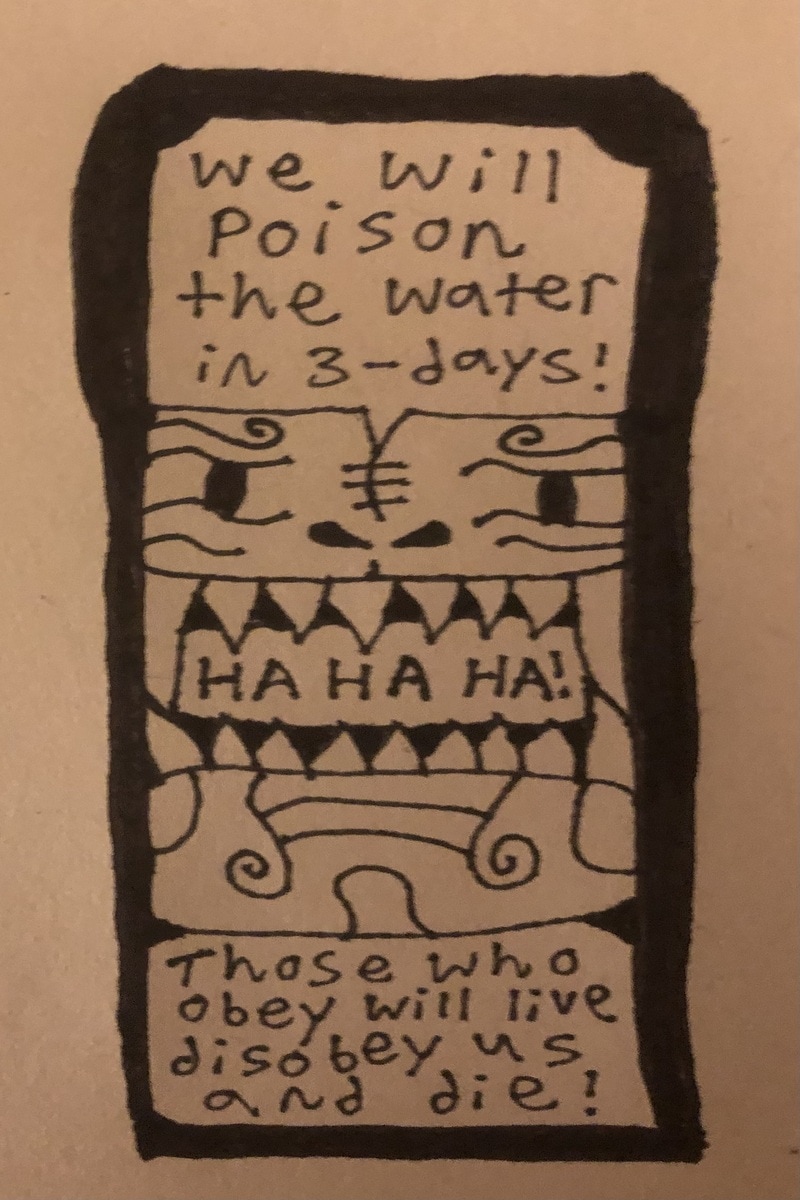 we will
Poison
the water
in 3-days!
HA HA HA!
Those who
obey will live
disobey us
and die!